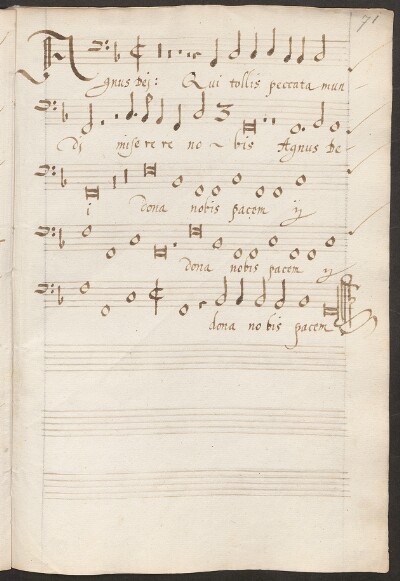 71
Agnus Dej: Qui tollis peccata mun
Dj misere re no ~ bis Agnus De
i dona nobis pacem ij
dona nobis pacem ij
dona nobis pacem